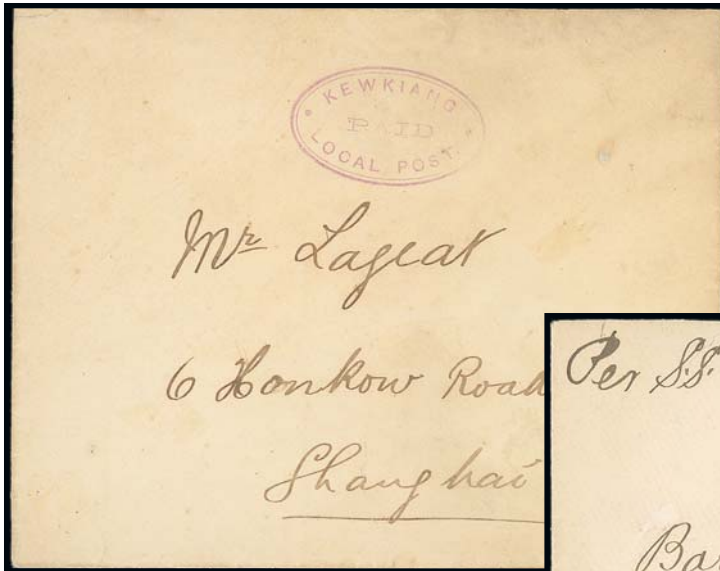 KEWKIANG
PAID
LOCAL POST.
Mr Lageat
6 Honkow Road
Shanghai
Per S.S.